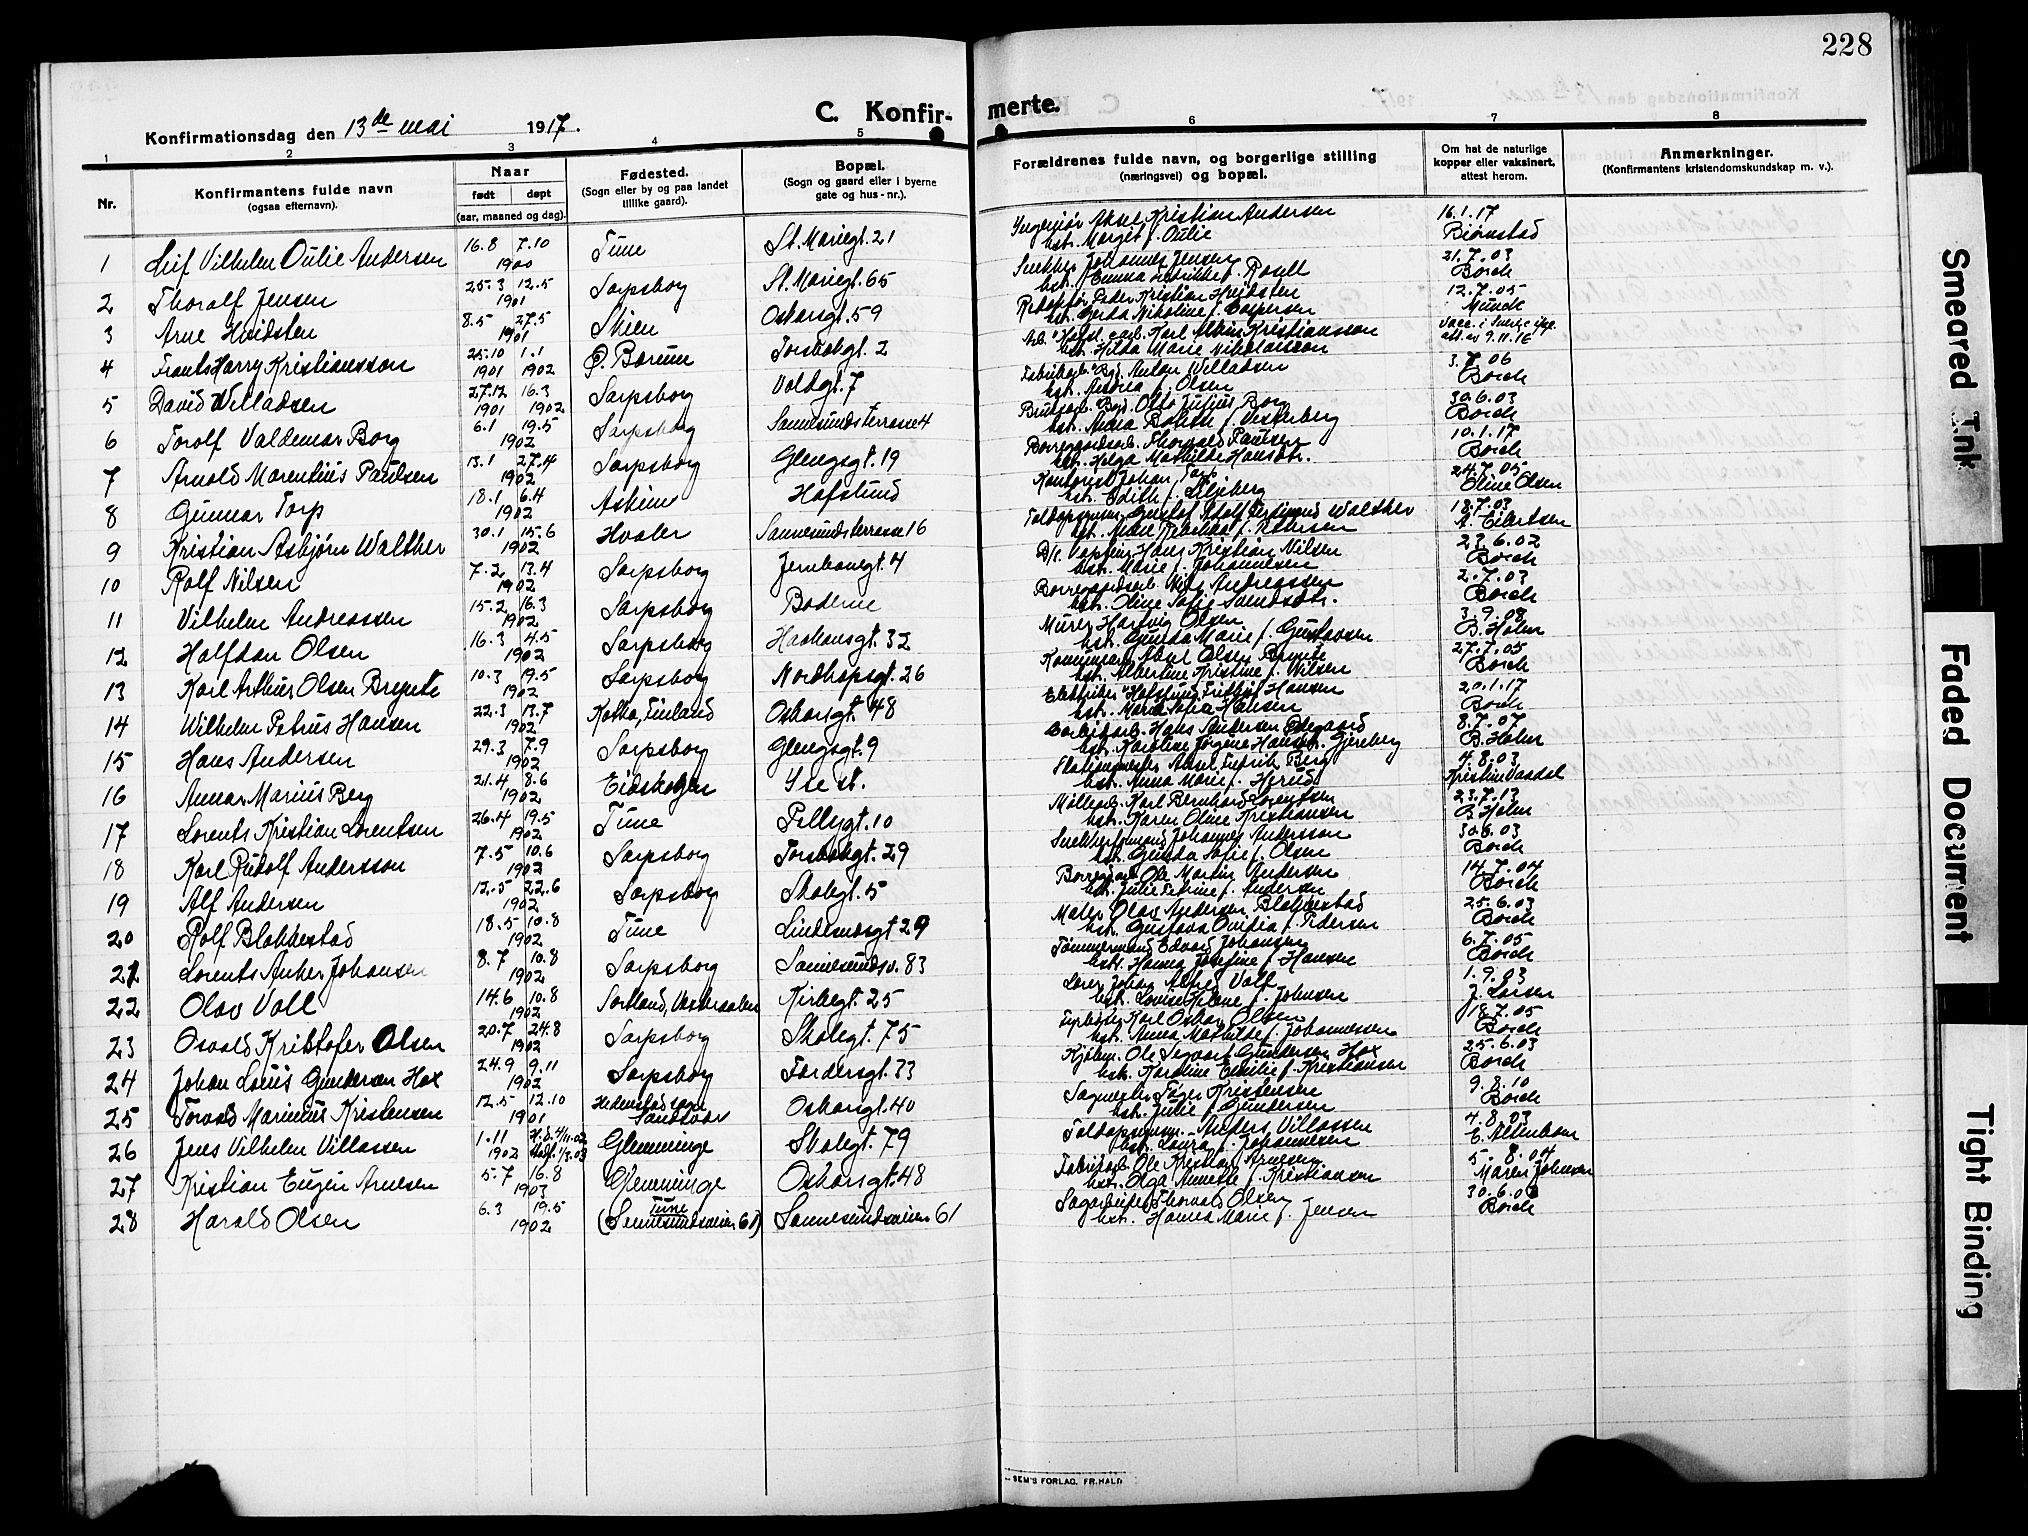 228
C. Konfirmerte.
Konfirmationsdag den 13de mai 1917.
1 2 3 4 5 6 7 8
Nr.
Konfirmantens fulde navn
(ogsaa efternavn).
Naar
født døpt
(aar, maaned og dag).
Fødested.
(Sogn eller by og paa landet
tillike gaard).
Bopæl.
(Sogn og gaard eller i byerne
gate og hus-nr.).
Forældrenes fulde navn, og borgerlige stilling
(næringsvei) og bopæl.
Om hat de naturlige
kopper eller vaksinert,
attest herom.
Anmerkninger.
(Konfirmantens kristendomskundskap m. v.).
1 Leif Vilhelm Oulie Andersen 16.8 7.10 1900 Tune St. Mariegt. 21 Ingeniør Aksel Kristian Andersen
hst. Margit f. Oulie 16.1.17 Bjørnstad
2 Thoralf Jensen 25.3 12.5 1901 Sarpsborg St. Mariegt. 65 Snekker Johannes Jensen
hst. Emma f. Rosell 21.7.03 Borch
3 Arne Hvidsten 8.5 27.5 1901 Skien Oskarsgt. 59 Redaktør Peder Kristian Hvidsten
hst. Gerda Nikoline f. Caspersen 12.7.05 Munch
4 Frants Harry Kristiansson 25.10 1901 1.1 1902 Ø. Bærum Torsbekgt. 2 Karl Albin Kristiansson
hst. Hilda Marie Nikolaisson 9.11.16
5 David Willadsen 27.12 1901 16.3 1902 Sarpsborg Voldgt. 7 Anton Willadsen
hst. Andrea f. Olsen 3.7.06 Borch
6 Torolf Valdemar Borg 6.1 19.5 1902 Sarpsborg Sannesunds terrasse 4 Otto Julius Borg
hst. Anna f. Vesterberg 30.6.03 Borch
7 Arnold Marentius Paulsen 13.1 27.4 1902 Sarpsborg Glengsgt. 19 Borregaardsarb. Thorvald Paulsen
hst. Helga Mathilde Hansdtr. 10.1.17 Borch
8 Gunnar Torp 18.1 6.4 1902 Askim Hafslund Kontorist Johan Torp
hst. Edith f. Liljeberg 24.7.05 Oline Olsen
9 Kristian Asbjørn Walther 30.1 15.6 1902 Hvaler Sannesunds terrasse 16 Toldopsynsm. Gustaf Adolf Walther
hst. f. Pettersen 18.7.03 A. Eilertsen
10 Rolf Nilsen 7.2 13.4 1902 Sarpsborg Jernbanegt. 4 Hans Kristian Nilsen
hst. Marie f. Johannesen 23.6.02 Borch
11 Vilhelm Andreassen 15.2 16.3 1902 Sarpsborg Baderne Borregaardsarb. Nils Andreassen
hst. Oline Sofie Svendsdtr. 2.7.03 Borch
12 Halfdan Olsen 16.3 4.5 1902 Sarpsborg Haakonsgt. 32 Murer Hartvig Olsen
hst. Gunda Marie f. Gustavsen 3.9.08 B. Holm
13 Karl Arthur Olsen Brevete 10.3 19.5 1902 Sarpsborg Nordkapsgt. 26 Aksel Olsen
hst. Albertine Kristine f. Nilsen 27.7.05 Borch
14 Wilhelm Petrus Hansen 22.3 13.7 1902 Kotka, Finland Oskarsgt. 48 Elektriker Hafslund Fritjof Hansen
hst. Maria Sofia Hansen 20.1.17 Borch
15 Hans Andersen 29.3 7.9 1902 Sarpsborg Glengsgt. 9 Hans Andersen Ødegaard
hst. Karoline Jørgine Hansdtr. Gjereberg 8.7.07 B. Holm
16 Annar Marius Berg 21.4 8.6 1902 Eidskogen Ise st. Stationsmester Aksel Fredrik Berg
hst. Anna Marie f. Herud 4.8.03 Kristine Vaadal
17 Lorents Kristian Lorentsen 26.4 19.5 1902 Tune Pellygt. 10 Møllearb. Karl Bernhard Lorentsen
hst. Karen Oline Kristiansen 23.7.13 B. Holm
18 Karl Rudolf Andersson 7.5 10.6 1902 Sarpsborg Torsbekgt. 29 Johannes Andersson
hst. Gunda Sofie f. Olsen 30.6.03 Borch
19 Alf Andersen 12.5 22.6 1902 Sarpsborg Skolegt. 5 Ole Martin Andersen
hst. Julie Petrine f. Andersen 14.7.04 Borch
20 Rolf Blakkestad 18.5 10.8 1902 Tune Lindesnesgt 29 Maler Olav Andersen Blakkestad
hst. Gustava Ovidia f. Pedersen 25.6.03 Borch
21 Lorents Anker Johansen 8.7 10.8 1902 Sarpsborg Sannesundsv. 83 Tømmermand Edvard Johansen
hst. Hanna Josefine f. Hansen 6.7.05 Borch
22 Olav Voll 14.6 10.8 1902 Sortland, Vesteraalen Kirkegt. 25 Lærer Johan Alfred Voll
hst. Lovise Helene f. Johnsen 1.9.03 J. Larsen
23 Osvald Kristofer Olsen 20.7 24.8 1902 Sarpsborg Skolegt. 75 Fyrbøter Karl Oskar Olsen
hst. Anna Mathilde f. Johannessen 18.7.05 Borch
24 Johan Louis Gundersen Hox 24.9 9.11 1902 Sarpsborg Færdersgt. 73 Kjølm. Ole Sigvart Gundersen Hox
hst. Karoline Emilie f. Kristiansen 25.6.03 Borch
25 Torvald Marinius Kristensen 12.5 12.10 1901 Hedenstad sogn Sandsvær Oskarsgt. 40 Sagmester Tøger Kristensen
hst. Julie f. Gundersen 9.8.10 Borch
26 Jens Vilhelm Villassen 1.11 1902 H.d. 4/11.02 Stadf. 1/3.03 Glemminge Skolegt. 79 Toldopsynsm. Anders Villassen
hst. Laura f. Johannesen 4.8.03 E. Altenborn
27 Kristian Eugen Arnesen 5.7 16.8 1903 Glemminge Oskarsgt. 48 Fabrikarb. Ole Kristian Arnesen
hst. Olga Annette f. Kristiansen 5.8.04 Maren Johnsen
28 Harald Olsen 6.3 19.5 1902 Tune (Sannesundsveien 61) Sannesundsveien 61 Sagarbeider Thorvald Olsen
hst. Hanna Marie f. Jensen 30.6.03 Borch
SEM'S FORLAG. FR.HALD
Smeared Ink
Faded Document
Tight Binding